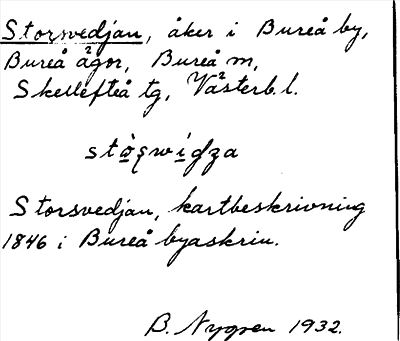 Storsvedjan, åker i Bureå by,
Bureå ägor, Bureå m,
Skellefteå tg, Västerb. l.
Storsvedjan, kartbeskrivning
1846 i Bureå byaskrin.
B. Nygren 1932.